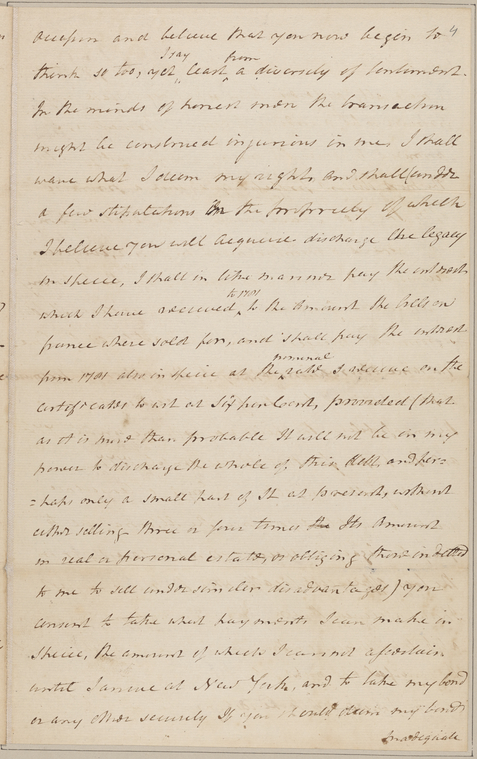 and believe that you now begin to
think so too, yet I say least from a diversity of sentiment
In the minds of honest men the transaction
might be construed injurious in me, I shall
wave what I deem my right, and shall (under
a few stipulations in the propriety of which
I believe you will acquiesce discharge the legacy
in specie, I shall in like manner pay the interest
which I have received to 1781, to the amount the bills on
france where sold for, and shall pay the interest
from 1781 also in specie at the nominal rate I receive on the
certificates to wit at Six per Cent, provided (that
as it is more than probable It will not be in my
power to discharge the whole of this Debt, and per=
=haps only a small part of It at present, without
either selling three or four times the Its amount
in real or personal estate, or obliging those indebted
to me to sell under similar disadvantages) you
consent to take what payments I can make in
specie, the amount of which I cannot ascertain
until I arrive at New York, and to take my bond
or any other security If you should deem my bond
inadequate